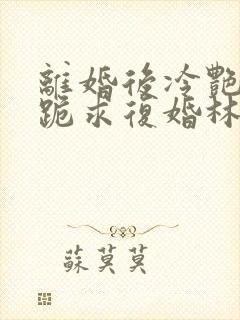 離婚後冷艷
跪求復婚林
蘇莫莫